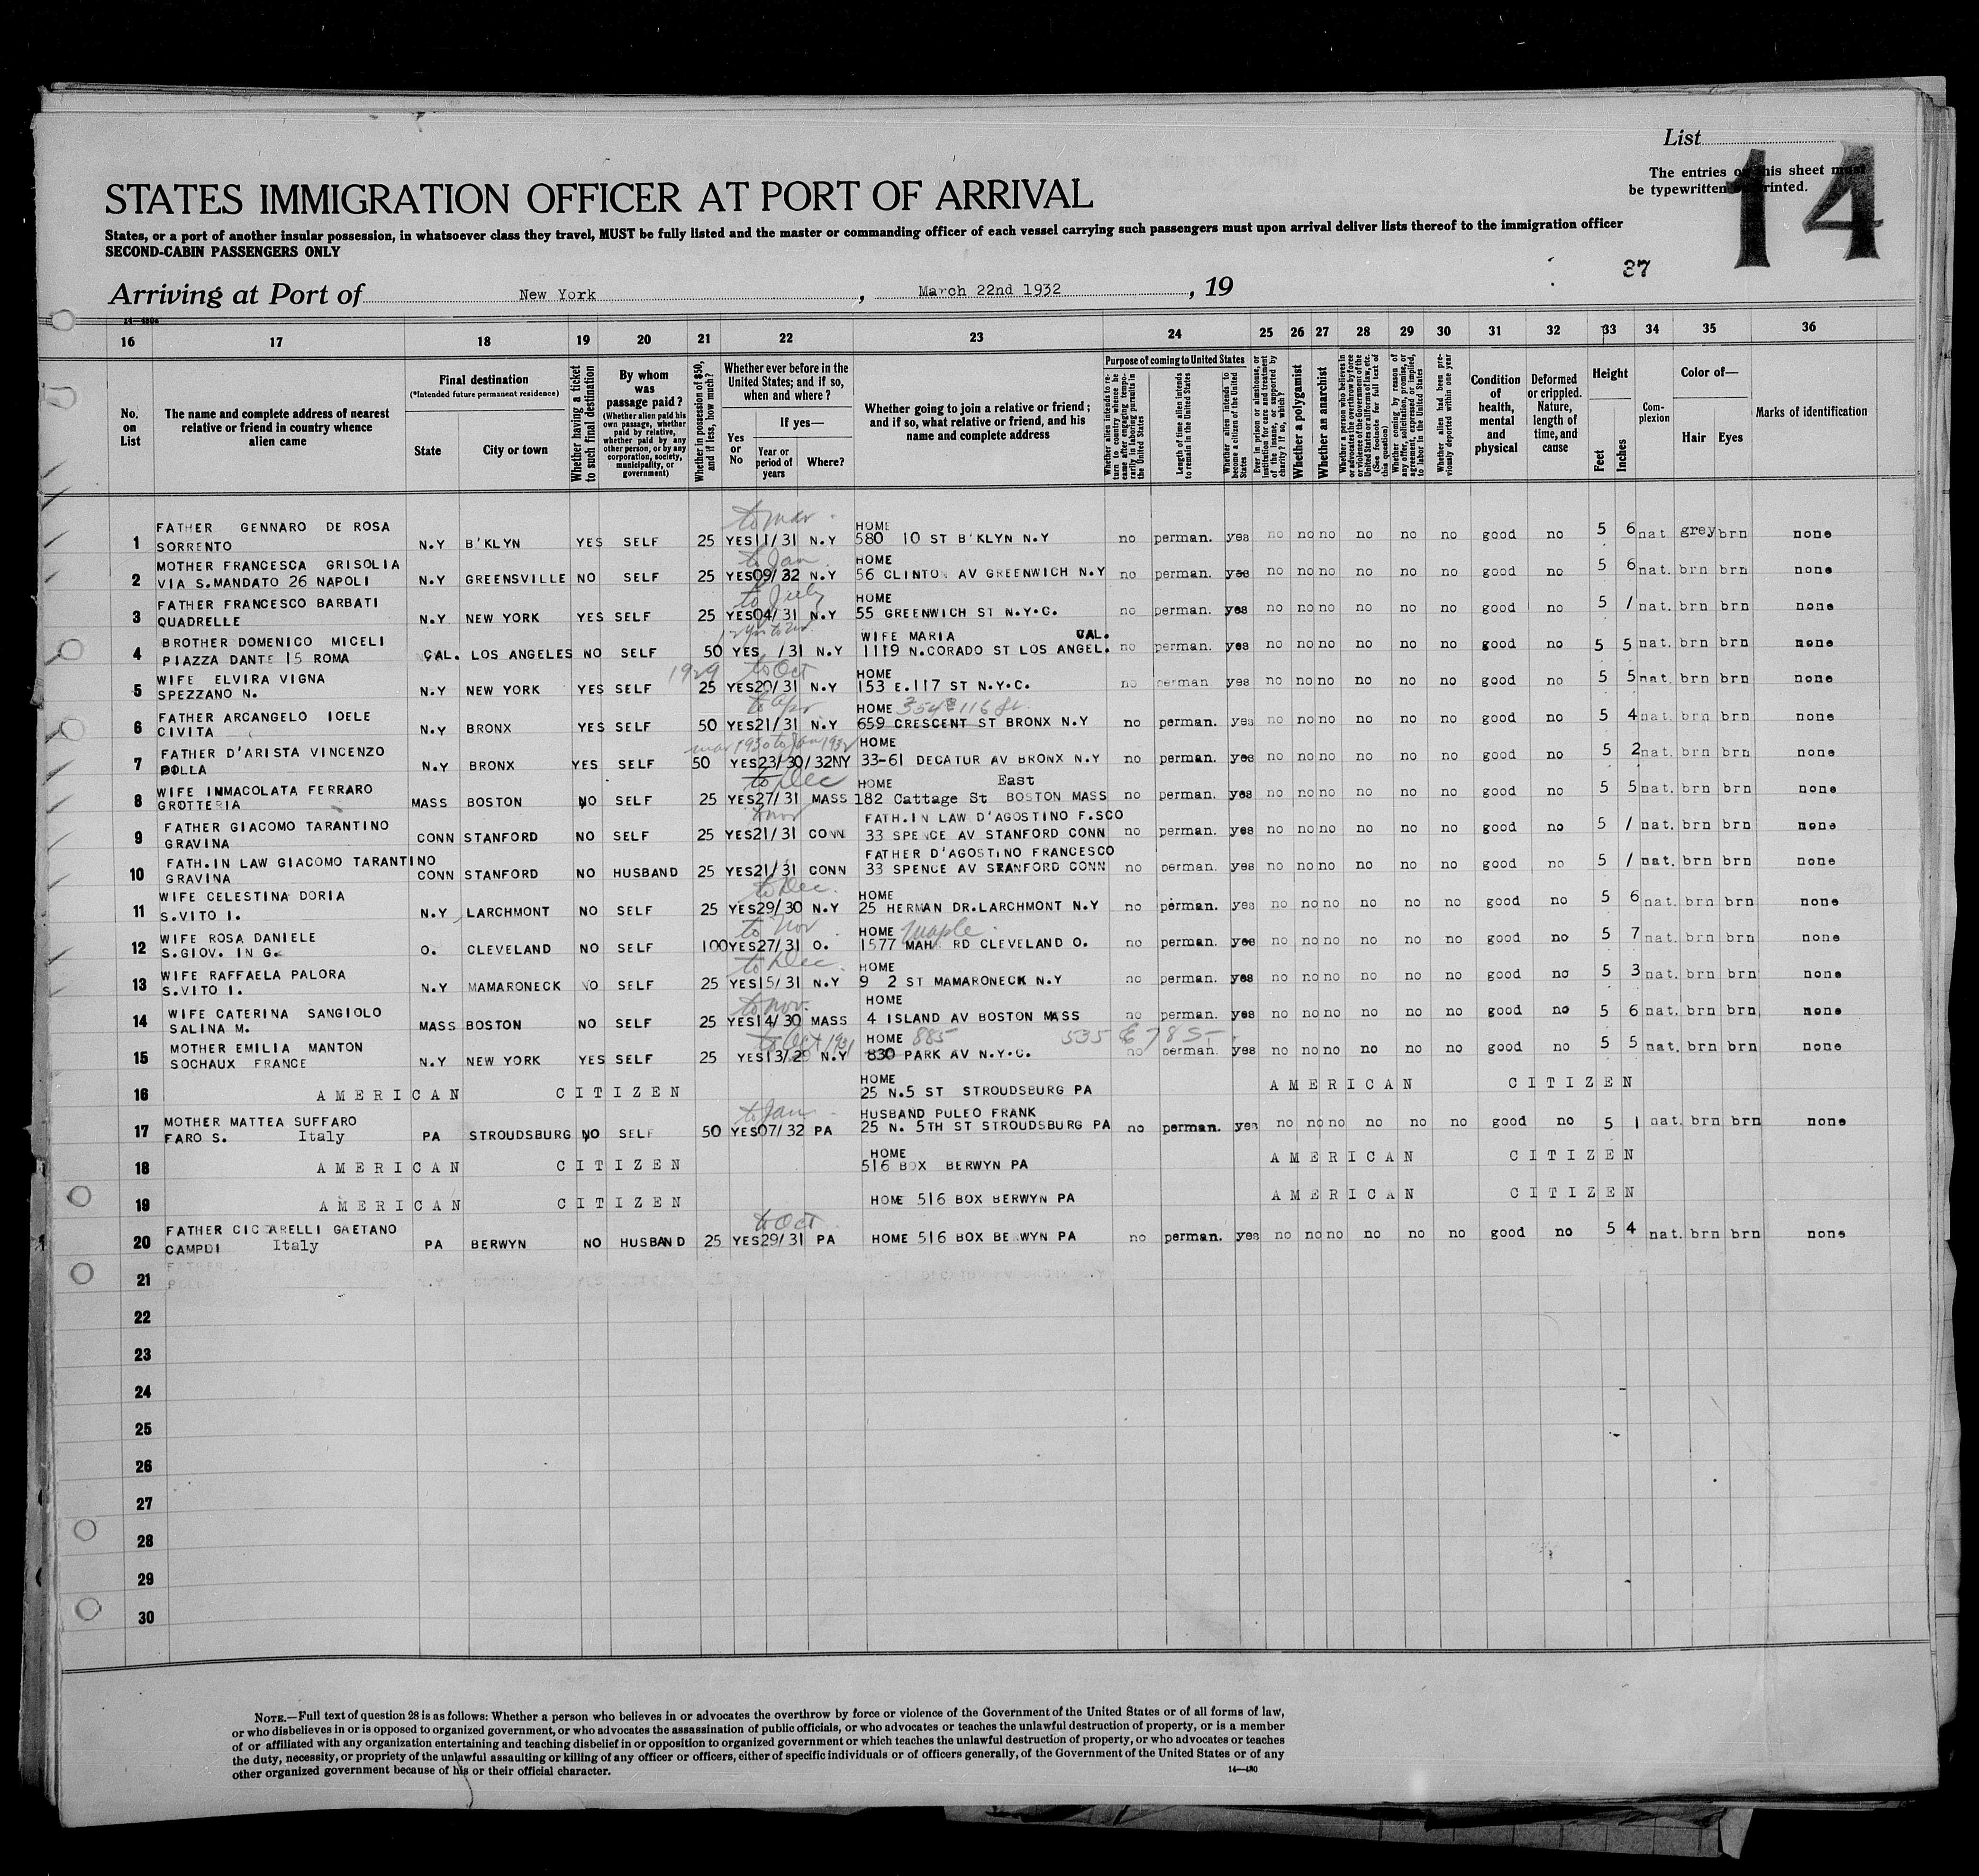 List
14
The entries on this sheet must
be typewritten or printed.
STATES IMMIGRATION OFFICER AT PORT OF ARRIVAL
States, or a port of another insular possession, in whatsoever class they travel, MUST be fully listed and the master or commanding officer of each vessel carrying such passengers must upon arrival deliver lists thereof to the immigration officer
SECOND-CABIN PASSENGERS ONLY
37
Arriving at Port of New York, March 22nd 1932, 19
14—480a
16 17 18 19 20 21 22 23 24 25 26 27 28 29 30 31 32 33 34 35 36
No. on List
The name and complete address of nearest relative or friend in country whence alien came
Final destination
(*Intended future permanent residence)
State
City or town
Whether having a ticket to such final destination
By whom was passage paid?
(Whether alien paid his own passage, whether paid by relative, whether paid by any other person, or by any corporation, society, municipality, or government)
Whether in possession of $50, and if less, how much?
Whether ever before in the United States; and if so, when and where?
Yes or No
If yes—
Year or period of years
Where?
Whether going to join a relative or friend; and if so, what relative or friend, and his name and complete address
Purpose of coming to United States
Whether alien intends to return to country whence he came after engaging temporarily in laboring pursuits in the United States
Length of time alien intends to remain in the United States
Whether alien intends to become a citizen of the United States
Ever in prison or almshouse, or institution for care and treatment of the insane, or supported by charity? If so, which?
Whether a polygamist
Whether an anarchist
Whether a person who believes in or advocates the overthrow by force or violence of the Government of the United States or all forms of law, etc. (See footnote for full text of this question)
Whether coming by reason of any offer, solicitation, promise, or agreement, expressed or implied, to labor in the United States
Whether alien had been previously deported within one year
Condition of health, mental and physical
Deformed or crippled. Nature, length of time, and cause
Height
Feet
Inches
Complexion
Color of—
Hair
Eyes
Marks of identification
to mar
FATHER GENNARO DE ROSA HOME
1 SORRENTO N.Y B'KLYN YES SELF 25 YES 11/31 N.Y 580 10 ST B'KLYN N.Y no perman. yes no no no no no no good no 5 6 nat. grey brn none
to Jan
MOTHER FRANCESCA GRISOLIA HOME
2 VIA S.MANDATO 26 NAPOLI N.Y GREENSVILLE NO SELF 25 YES 09/32 N.Y 56 CLINTON AV GREENWICH N.Y no perman. yes no no no no no no good no 5 6 nat. brn brn none
to July
FATHER FRANCESCO BARBATI HOME
3 QUADRELLE N.Y NEW YORK YES SELF 25 YES 04/31 N.Y 55 GREENWICH ST N.Y.C. no perman. yes no no no no no no good no 5 / nat. brn brn none
BROTHER DOMENICO MICELI WIFE MARIA CAL.
4 PIAZZA DANTE 15 ROMA CAL. LOS ANGELES NO SELF 50 YES /31 N.Y 1119 N.CORADO ST LOS ANGEL. no perman. yes no no no no no no good no 5 5 nat. brn brn none
1929 to Oct
WIFE ELVIRA VIGNA HOME
5 SPEZZANO N. N.Y NEW YORK YES SELF 25 YES 20/31 N.Y 153 E.117 ST N.Y.C. no perman. yes no no no no no no good no 5 5 nat. brn brn none
to apr
FATHER ARCANGELO IOELE HOME 354 E 116 St.
6 CIVITA N.Y BRONX YES SELF 50 YES 21/31 N.Y 659 CRESCENT ST BRONX N.Y no perman. yes no no no no no no good no 5 4 nat. brn brn none
mar 1930 to Jan 1932
FATHER D'ARISTA VINCENZO HOME
7 POLLA N.Y BRONX YES SELF 50 YES 23/30/32 NY 33-61 DECATUR AV BRONX N.Y no perman. yes no no no no no no good no 5 2 nat. brn brn none
to Dec
WIFE INMACOLATA FERRARO HOME East
8 GROTTERIA MASS BOSTON NO SELF 25 YES 27/31 MASS 182 Cattage St BOSTON MASS no perman. yes no no no no no no good no 5 5 nat. brn brn none
to nov
FATHER GIACOMO TARANTINO FATH.IN LAW D'AGOSTINO F.SCO
9 GRAVINA CONN STANFORD NO SELF 25 YES 21/31 CONN 33 SPENCE AV STANFORD CONN no perman. yes no no no no no no good no 5 / nat. brn brn none
FATH.IN LAW GIACOMO TARANTINO FATHER D'AGOSTINO FRANCESCO
10 GRAVINA CONN STANFORD NO HUSBAND 25 YES 21/31 CONN 33 SPENCE AV STANFORD CONN no perman. yes no no no no no no good no 5 / nat. brn brn none
to Dec.
WIFE CELESTINA DORIA HOME
11 S.VITO I. N.Y LARCHMONT NO SELF 25 YES 29/30 N.Y 25 HERMAN DR.LARCHMONT N.Y no perman. yes no no no no no no good no 5 6 nat. brn brn none
to Nov
WIFE ROSA DANIELE HOME maple
12 S.GIOV. IN G. O. CLEVELAND NO SELF 100 YES 27/31 O. 1577 MAH. RD CLEVELAND O. no perman. yes no no no no no no good no 5 7 nat. brn brn none
to Dec.
WIFE RAFFAELA PALORA HOME
13 S.VITO I. N.Y MAMARONECK NO SELF 25 YES 15/31 N.Y 9 2 ST MAMARONECK N.Y no perman. yes no no no no no no good no 5 3 nat. brn brn none
to nov.
WIFE CATERINA SANGIOLO HOME
14 SALINA M. MASS BOSTON NO SELF 25 YES 14/30 MASS 4 ISLAND AV BOSTON MASS no perman. yes no no no no no no good no 5 6 nat. brn brn none
to Oct 1931
MOTHER EMILIA MANTON HOME 885 535 E 78 ST
15 SOCHAUX FRANCE N.Y NEW YORK YES SELF 25 YES 13/29 N.Y 830 PARK AV N.Y.C. no perman. yes no no no no no no good no 5 5 nat. brn brn none
HOME
16 AMERICAN CITIZEN 25 N.5 ST STROUDSBURG PA AMERICAN CITIZEN
to Jan
MOTHER MATTEA SUFFARO HUSBAND PULEO FRANK
17 FARO S. Italy PA STROUDSBURG NO SELF 50 YES 07/32 PA 25 N. 5TH ST STROUDSBURG PA no perman. yes no no no no no no good no 5 1 nat. brn brn none
HOME
18 AMERICAN CITIZEN 516 BOX BERWYN PA AMERICAN CITIZEN
19 AMERICAN CITIZEN HOME 516 BOX BERWYN PA AMERICAN CITIZEN
to Oct
FATHER CICCARELLI GAETANO
20 CAMPDI Italy PA BERWYN NO HUSBAND 25 YES 29/31 PA HOME 516 BOX BERWYN PA no perman. yes no no no no no no good no 5 4 nat. brn brn none
21
22
23
24
25
26
27
28
29
30
NOTE.—Full text of question 28 is as follows: Whether a person who believes in or advocates the overthrow by force or violence of the Government of the United States or of all forms of law,
or who disbelieves in or is opposed to organized government, or who advocates the assassination of public officials, or who advocates or teaches the unlawful destruction of property, or is a member
of or affiliated with any organization entertaining and teaching disbelief in or opposition to organized government or which teaches the unlawful destruction of property, or who advocates or teaches
the duty, necessity, or propriety of the unlawful assaulting or killing of any officer or officers, either of specific individuals or of officers generally, of the Government of the United States or of any
other organized government because of his or their official character.
14—480